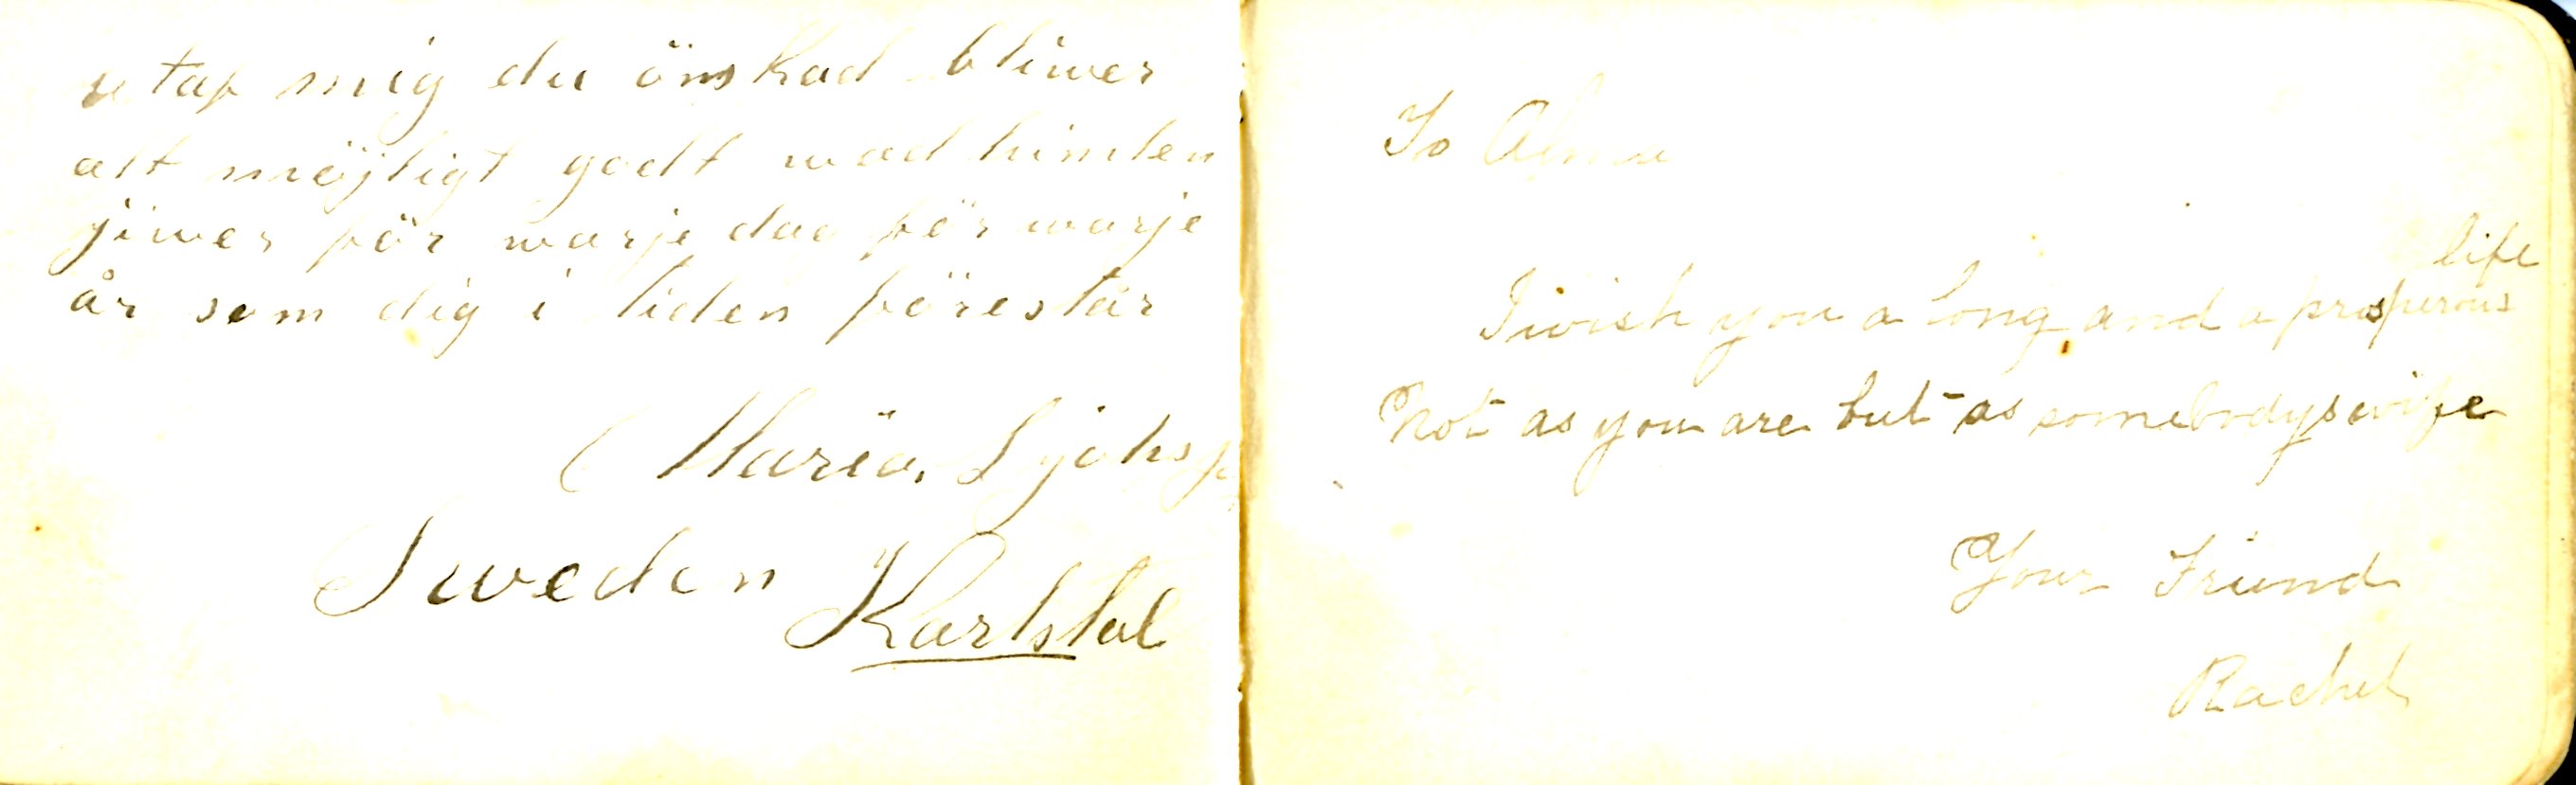 utaf mig du önskad bliwer
alt möjligt godt wad himlen
jiwer för warje dag för warje
år som dig i tiden förestår
Maria
Sweden Karlstad
To Alma
life
I wish you a long and a prosperous
Not as you are but as somebodys wife
Your Friend
Rachel